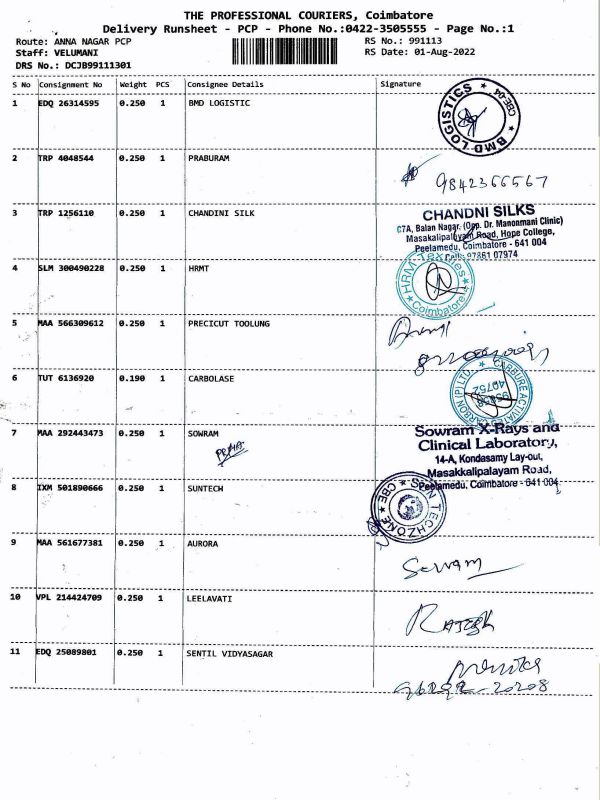 THE PROFESSIONAL COURIERS, Coimbatore
Delivery Runsheet - PCP - Phone No.:0422-3505555 - Page No.:1
Route: ANNA NAGAR PCP RS No.: 991113
Staff: VELUMANI RS Date: 01-Aug-2022
DRS No.: DCJB99111301
S No Consignment No Weight PCS Consignee Details Signature
1 EDQ 26314595 0.250 1 BMD LOGISTIC
BMD LOGISTICS CBE-04
2 TRP 4048544 0.250 1 PRABURAM
9842366567
3 TRP 1256110 0.250 1 CHANDINI SILK
CHANDNI SILKS
C7A, Balan Nagar, (Opp. Dr. Manonmani Clinic)
Masakalipalayam Road, Hope College,
Peelamedu, Coimbatore - 641 004
Cell: 97861 07974
4 SLM 300490228 0.250 1 HRMT
HRM Textiles Coimbatore
5 MAA 566309612 0.250 1 PRECICUT TOOLUNG
6 TUT 6136920 0.190 1 CARBOLASE
7 MAA 292443473 0.250 1 SOWRAM
Sowram X-Rays and
Clinical Laboratory,
14-A, Kondasamy Lay-out,
Masakkalipalayam Road,
Peelamedu, Coimbatore - 641 004.
8 IXM 501890666 0.250 1 SUNTECH
SUN TECHZONE CBE
9 MAA 561677381 0.250 1 AURORA
10 VPL 214424709 0.250 1 LEELAVATI
RAJESH
11 EDQ 25089801 0.250 1 SENTIL VIDYASAGAR